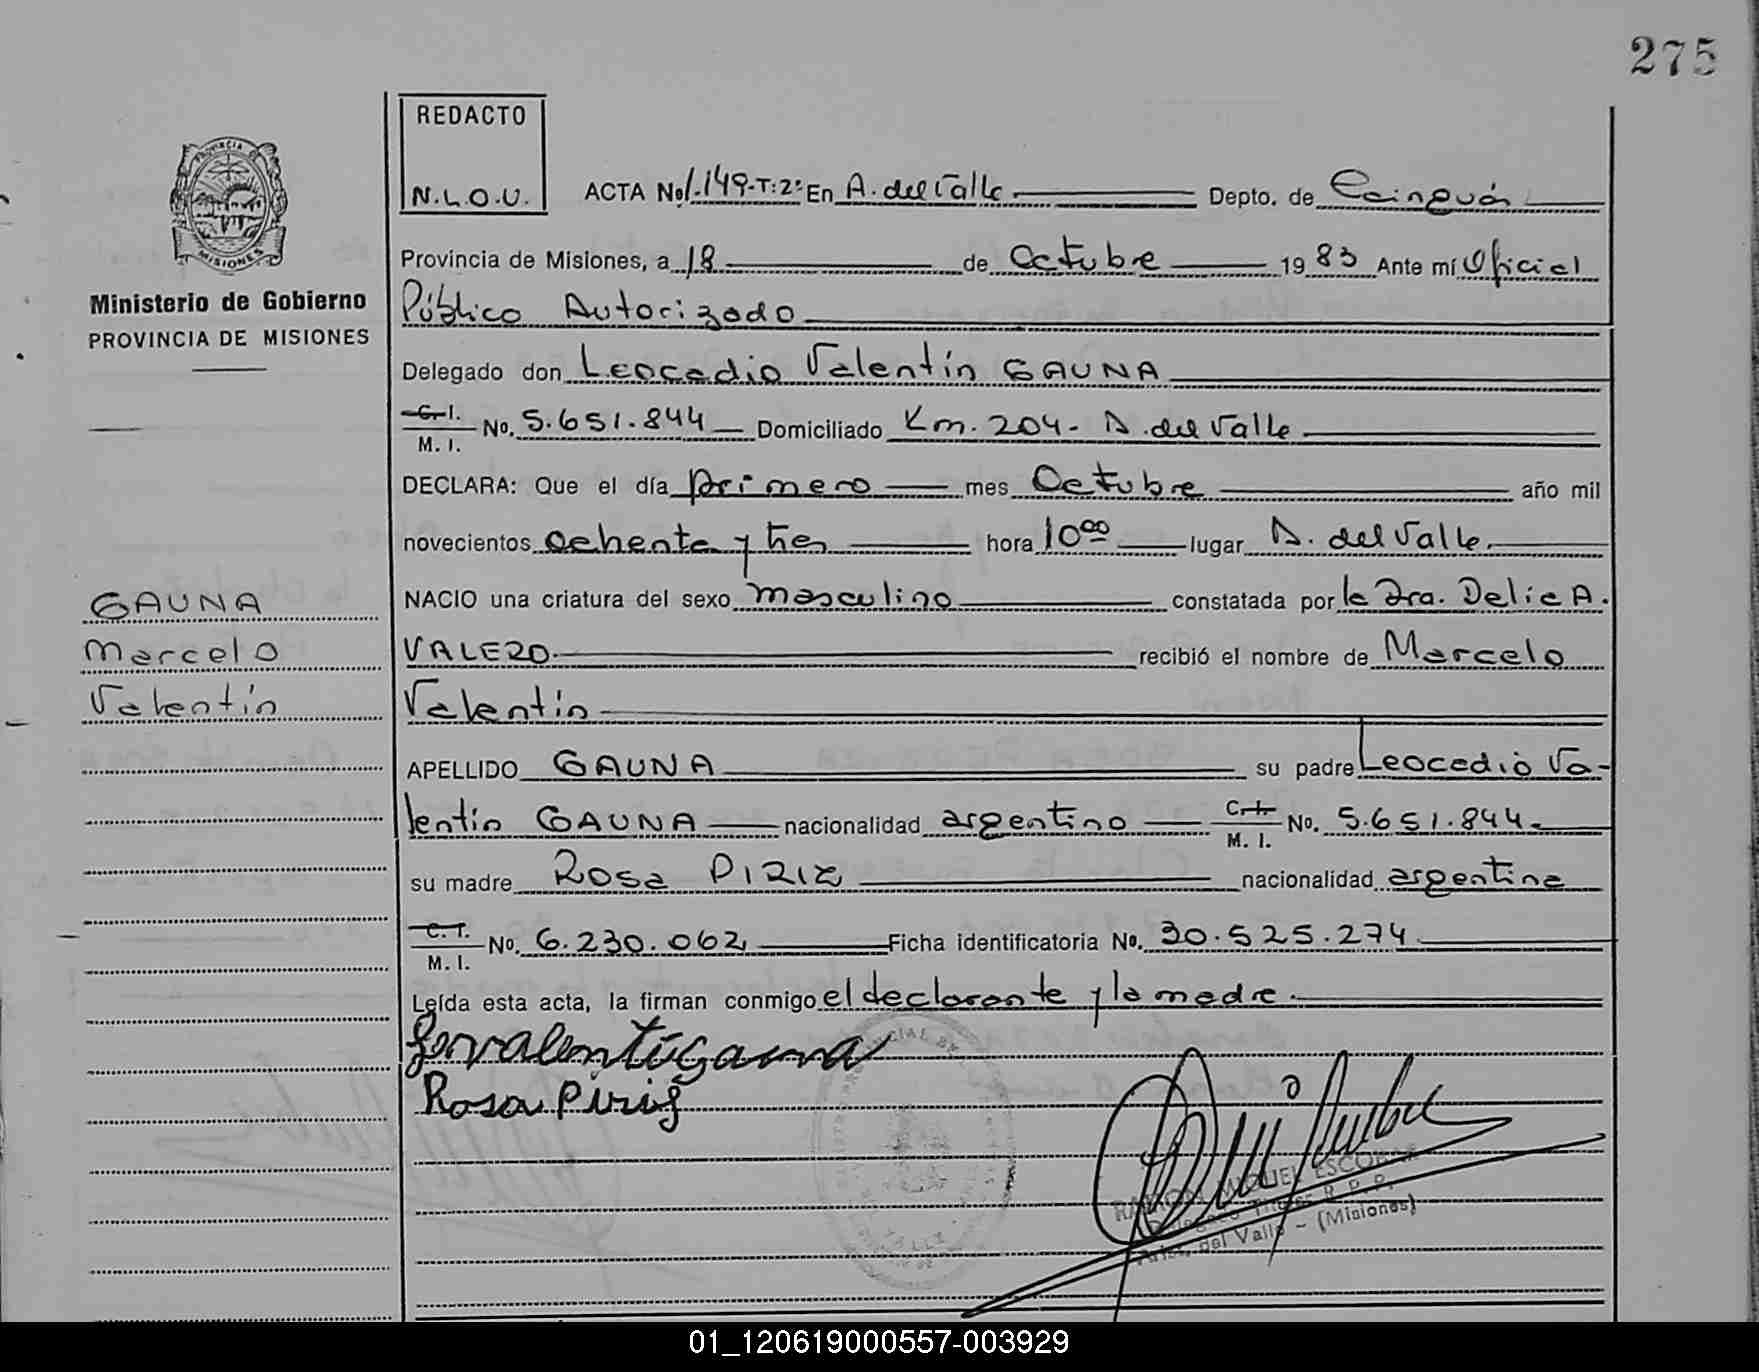 275
REDACTO
N.L.O.U.
PROVINCIA DE
MISIONES
Ministerio de Gobierno
PROVINCIA DE MISIONES
ACTA No 1.149-T:2º En A. del Valle Depto. de Cainguás
Provincia de Misiones, a 18 de Octubre 1983 Ante mí Oficial
Público Autorizado
Delegado don Leocadio Valentín GAUNA
C. I. / M. I. No. 5.651.844 Domiciliado Km. 204- A. del Valle
DECLARA: Que el día primero mes Octubre año mil
novecientos ochenta y tres hora 10 00 lugar A. del Valle.
NACIO una criatura del sexo masculino constatada por la Dra. Delia A.
VALERO recibió el nombre de Marcelo
Valentín
GAUNA
Marcelo
Valentín
APELLIDO GAUNA su padre Leocadio Va-
lentín GAUNA nacionalidad argentino C. I. / M. I. No. 5.651.844
su madre Rosa PIRIZ nacionalidad argentina
C. I. / M. I. No. 6.230.062 Ficha identificatoria No. 30.525.274
Leída esta acta, la firman conmigo el declarante y la madre.
Rosa Piris
RAMON MIGUEL ESCOBAR
Delegado Titular R. P. P.
Arist. del Valle - (Misiones)
01_120619000557-003929